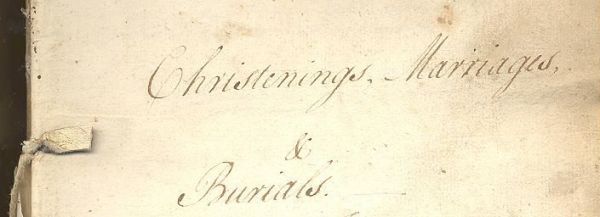 Christenings, Marriages,
&
Burials.